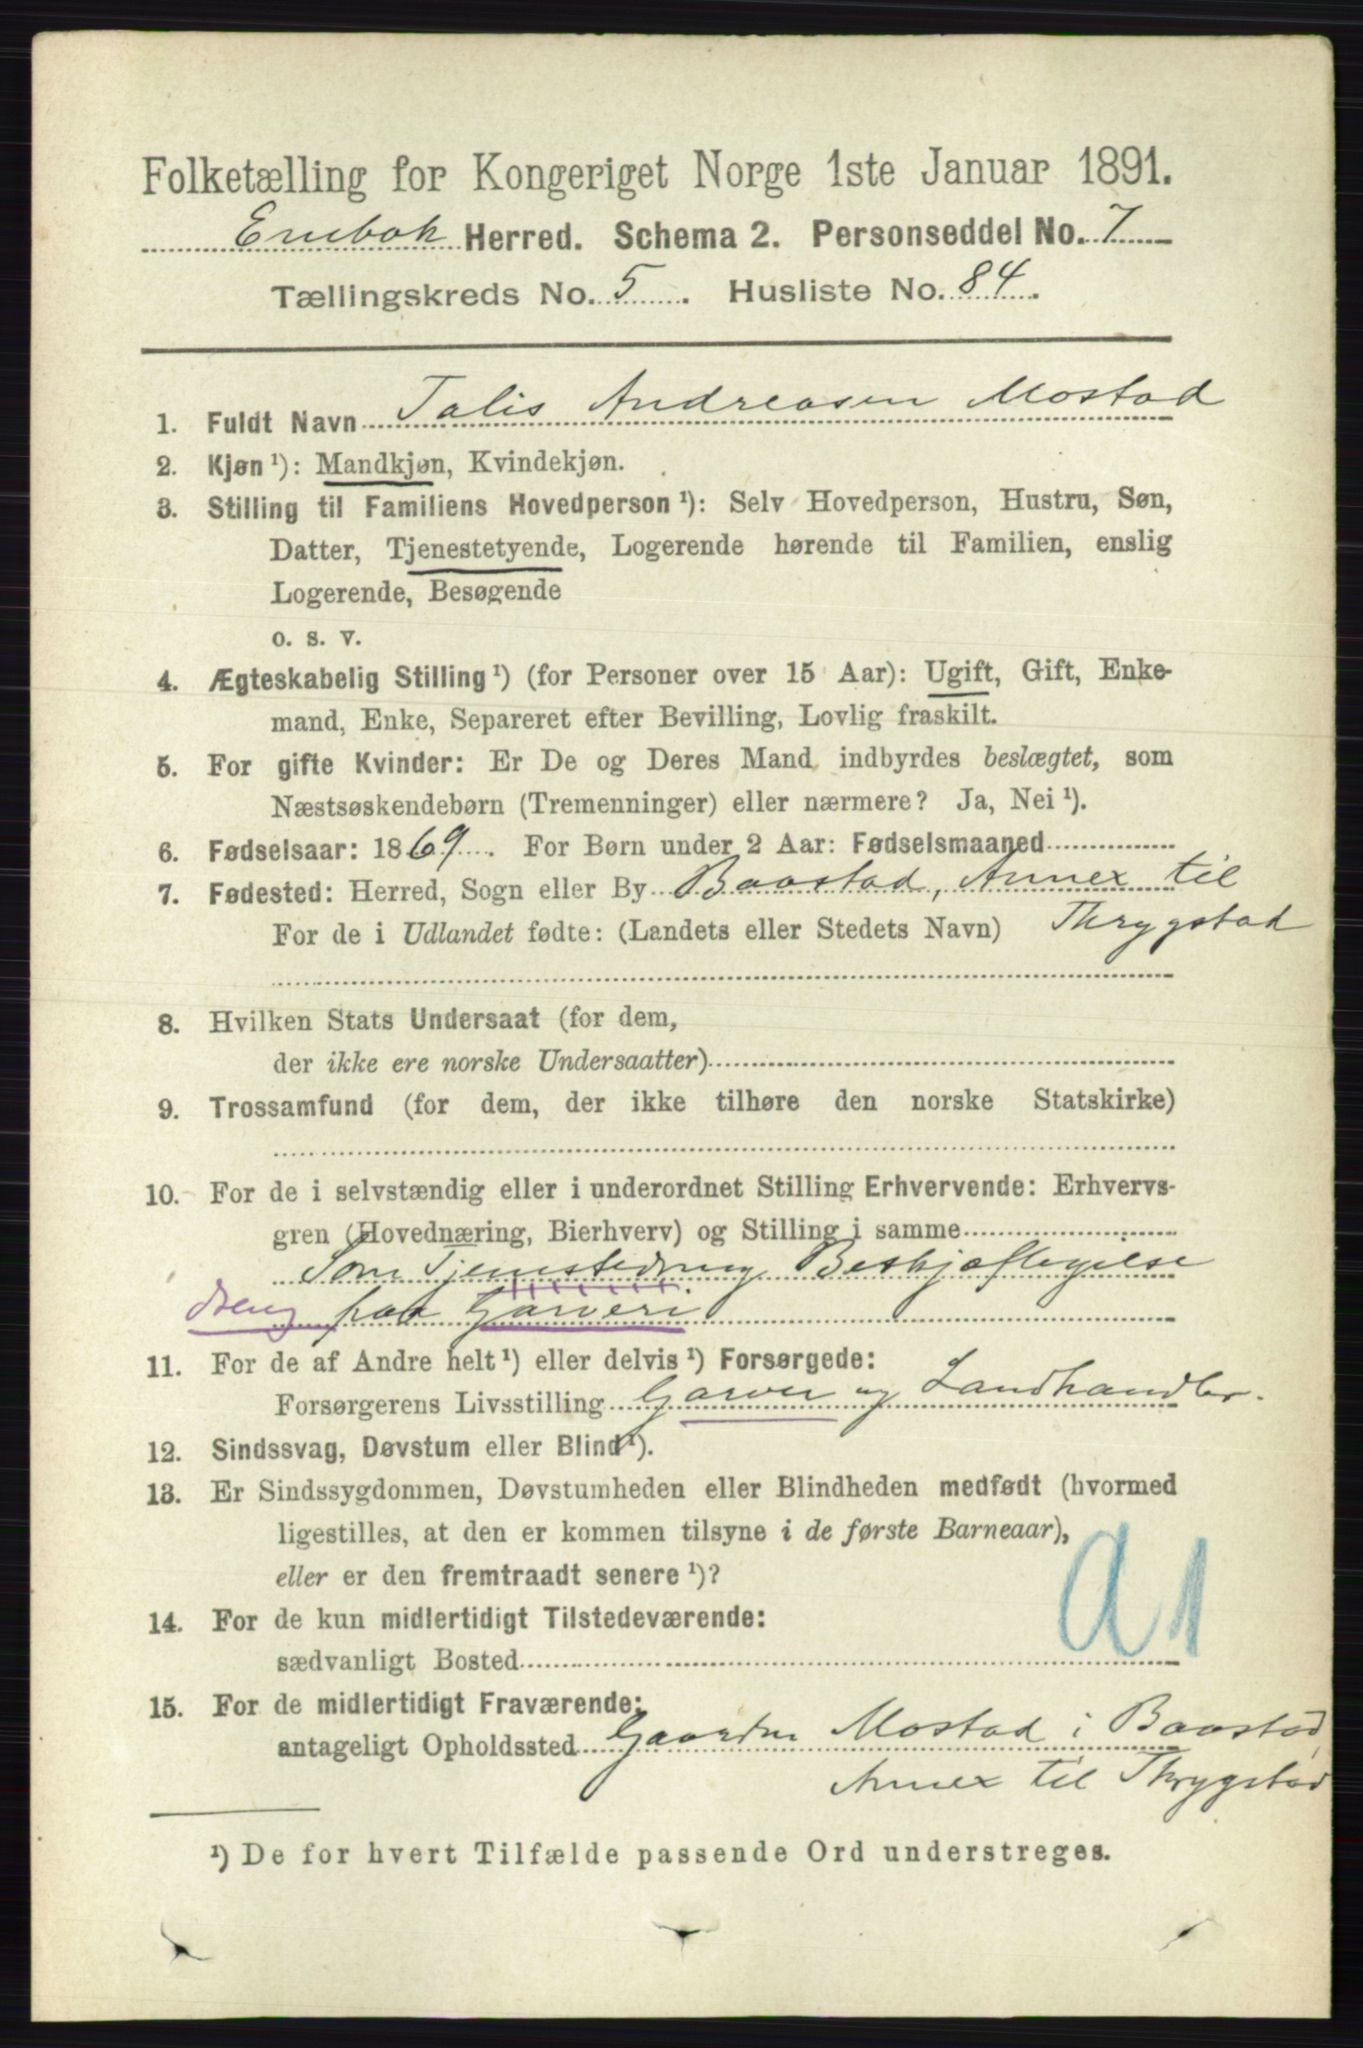 Folketælling for Kongeriget Norge 1ste Januar 1891.
Enebak Herred. Schema 2. Personseddel No. 7
Tællingskreds No. 5. Husliste No. 84.
1. Fuldt Navn Talis Andreasen Mostad
2. Kjøn ¹): Mandkjøn, Kvindekjøn.
3. Stilling til Familiens Hovedperson ¹): Selv Hovedperson, Hustru, Søn,
Datter, Tjenestetyende, Logerende hørende til Familien, enslig
Logerende, Besøgende
o. s. v.
4. Ægteskabelig Stilling ¹) (for Personer over 15 Aar): Ugift, Gift, Enke-
mand, Enke, Separeret efter Bevilling, Lovlig fraskilt.
5. For gifte Kvinder: Er De og Deres Mand indbyrdes beslægtet, som
Næstsøskendebørn (Tremenninger) eller nærmere? Ja, Nei ¹).
6. Fødselsaar: 1869. For Børn under 2 Aar: Fødselsmaaned
7. Fødested: Herred, Sogn eller By Baastad, Annex til
For de i Udlandet fødte: (Landets eller Stedets Navn) Thrygstad
8. Hvilken Stats Undersaat (for dem,
der ikke ere norske Undersaatter)
9. Trossamfund (for dem, der ikke tilhøre den norske Statskirke)
10. For de i selvstændig eller i underordnet Stilling Erhvervende: Erhvervs-
gren (Hovednæring, Bierhverv) og Stilling i samme
Som Tjenestedreng Beskjæftigelse
dreng paa Garveri
11. For de af Andre helt ¹) eller delvis ¹) Forsørgede:
Forsørgerens Livsstilling Garver og Landhandler.
12. Sindssvag, Døvstum eller Blind ¹).
13. Er Sindssygdommen, Døvstumheden eller Blindheden medfødt (hvormed
ligestilles, at den er kommen tilsyne i de første Barneaar),
eller er den fremtraadt senere ¹)?
A1
14. For de kun midlertidigt Tilstedeværende:
sædvanligt Bosted
15. For de midlertidigt Fraværende:
antageligt Opholdssted Gaarden Mostad i Baastad
Annex til Thrygstad
¹) De for hvert Tilfælde passende Ord understreges.